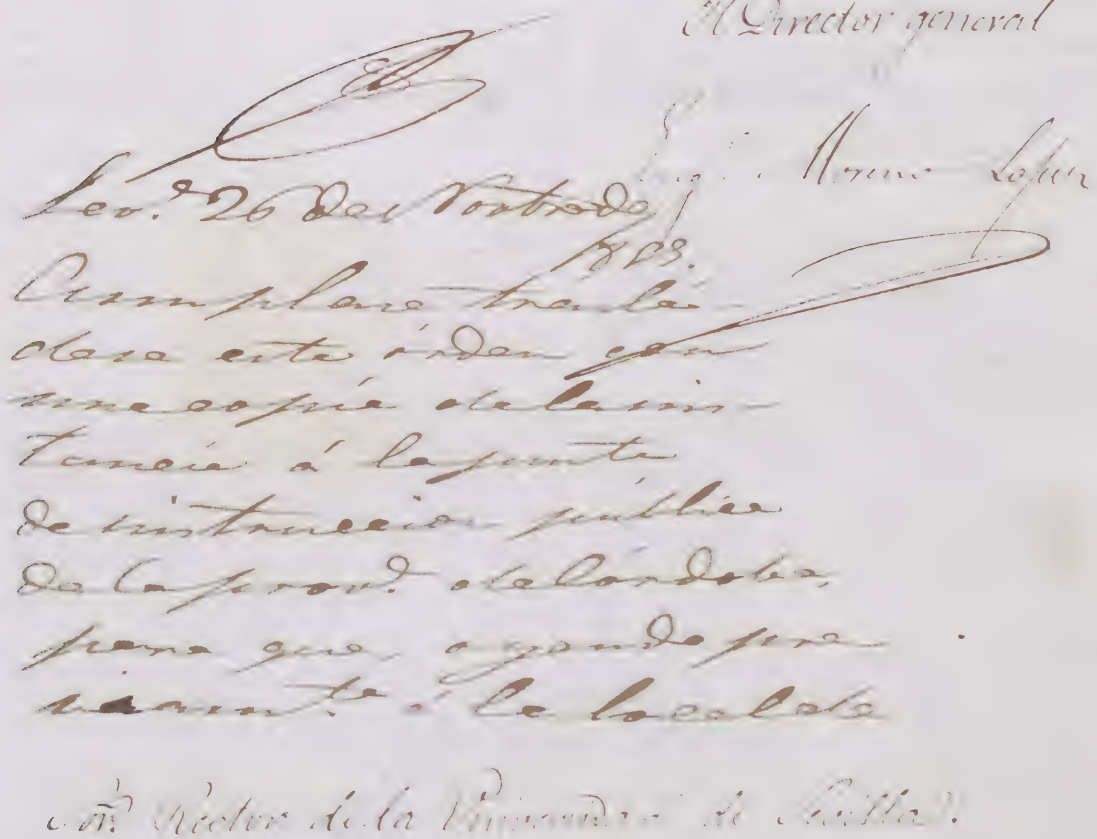 El Director general
Moreno Lopez
Sev.ª 26 de Novbre de
Cumplase trasla
dese esta órden con
una copia de la ins
tancia á la junta
de instruccion pública
de la prov.ª de Córdoba,
para que, oyendo pre
viam.te á la local de
Sor. Rector de la Universidad de Sevilla.